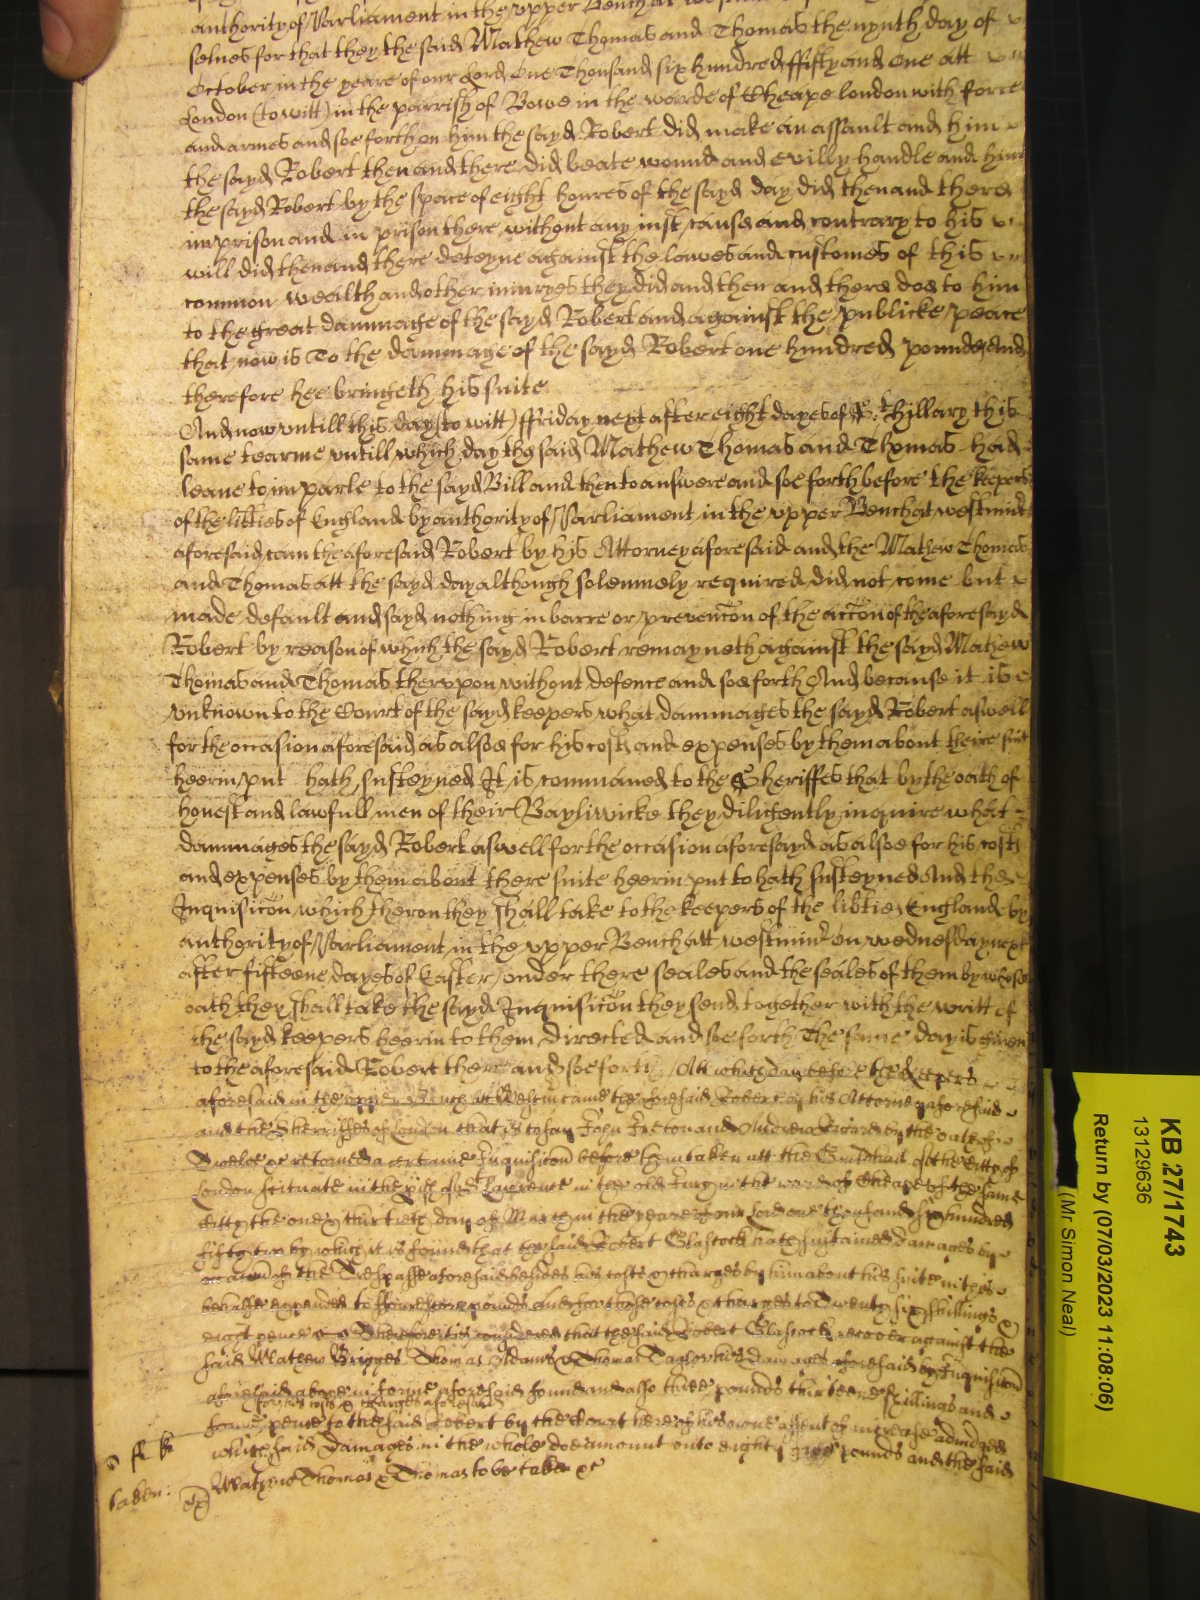 authority of Parliament in the upper Bench at
selves for that they the said Mathew Thomas and Thomas the nynth day of
October in the yeare of our Lord One Thousand six hundred ffifty and One att
London (to witt) in the parrish of Bowe in the warde of Cheape london with force
and armes and soe forth on him the sayd Robert did make an assault and him
the sayd Robert then and there did beate wound and evilly handle and him
the sayd Robert by the space of eight houres of the sayd day did then and there
imprison and in prison there without any iust cause and contrary to his
will did then and there deteyne against the lawes and customes of this
common wealth and other iniuryes they did and then and there doe to him
to the great dammage of the sayd Robert and against the publicke peace
that now is To the dammage of the sayd Robert one hundred pounds and
therefore hee bringeth his suite
And now untill this day (to witt) ffriday next after eight dayes of St. Hillary this
same tearme untill which day the said Mathew Thomas and Thomas had
leave to imparle to the sayd Bill and then to answere and soe forth before the keepers
of the lib'ties of England by authority of Parliament in the upper Bench at westminst
aforesaid cam the aforesaid Robert by his Attorney aforesaid and the Mathew Thomas
and Thomas att the sayd day although solemnely required did not come but
made default and sayd nothing in barre or prevencon of the accon of the aforesayd
Robert by reason of which the sayd Robert remayneth against the sayd Mathew
Thomas and Thomas therupon without defence and soe forth And because it is
unknown to the Court of the sayd keepers what dammages the sayd Robert aswell
for the occasion aforesaid as alsoe for his costs and expenses by them about theire suit
heerin put hath susteyned It is commaned to the Sheriffes that by the oath of
honest and lawfull men of their Bayliwicke they diligently inquire what
dammages the sayd Robert aswell for the occasion aforesayd as alsoe for his costs
and expenses by them about there suite heerin put to hath susteyned And the
Inquisicon which theron they shall take to the keepers of the lib'tie England by
authority of Parliament in the upper Bench att westminst on wednesday next
after fifteene dayes of Easter under there seales and the seales of them by whose
oath they shall take the sayd Inquisicon they send together with the writt of
the sayd keepers heerin to them directed and soe forth The same day is given
to the aforesaid Robert there and soe forth Att which day before the keepers
aforesaid in the upper Bench at Westm came the aforesaid Robert by his Attorney aforesaid
and the Sheriffes of London that is to say John and Andrew by the oath of
Twelve &c retorned a certaine Inquisicon before them taken att the Guildhall of the Citty of
London scituate in the pish of St Lawrence in the old Jury in the ward of Cheape of the same
Citty the one & thirtieth day of March in the yeare of our Lord one thousand six hundred
fifty two by which it is found that the said Robert Glascock hath sustained damages by
occasion of the Trespasse aforesaid besides his costs & charges by him about his suite in this
behalfe expended to ffourscore pounds And for those costs & charges to Twenty six shillings &
eight pence Therefore it is considered that the said Robert Glascock recover against the
said Mathew Brigges Thomas Adams & Thomas Taylor his damages aforesaid by the Inquisicon
aforesaid above in forme aforesaid found and also three pounds thirteene shillings and
for his costs & charges aforesaid
foure pence to the said Robert by the Court here of his owne assent of increase adiudged
which said Damages in the whole doe amount unto eighty five pounds and the said
Mathew Thomas & Thomas to be taken &c
KB 27/1743
13129636
Return by (07/03/2023 11:08:06)
(Mr Simon Neal)